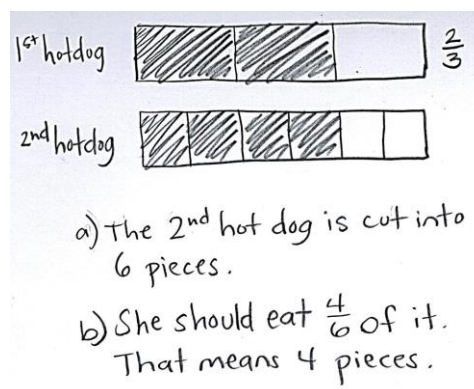 1st hotdog 2/3
2nd hotdog
a) The 2nd hot dog is cut into
6 pieces.
b) She should eat 4/6 of it.
That means 4 pieces.